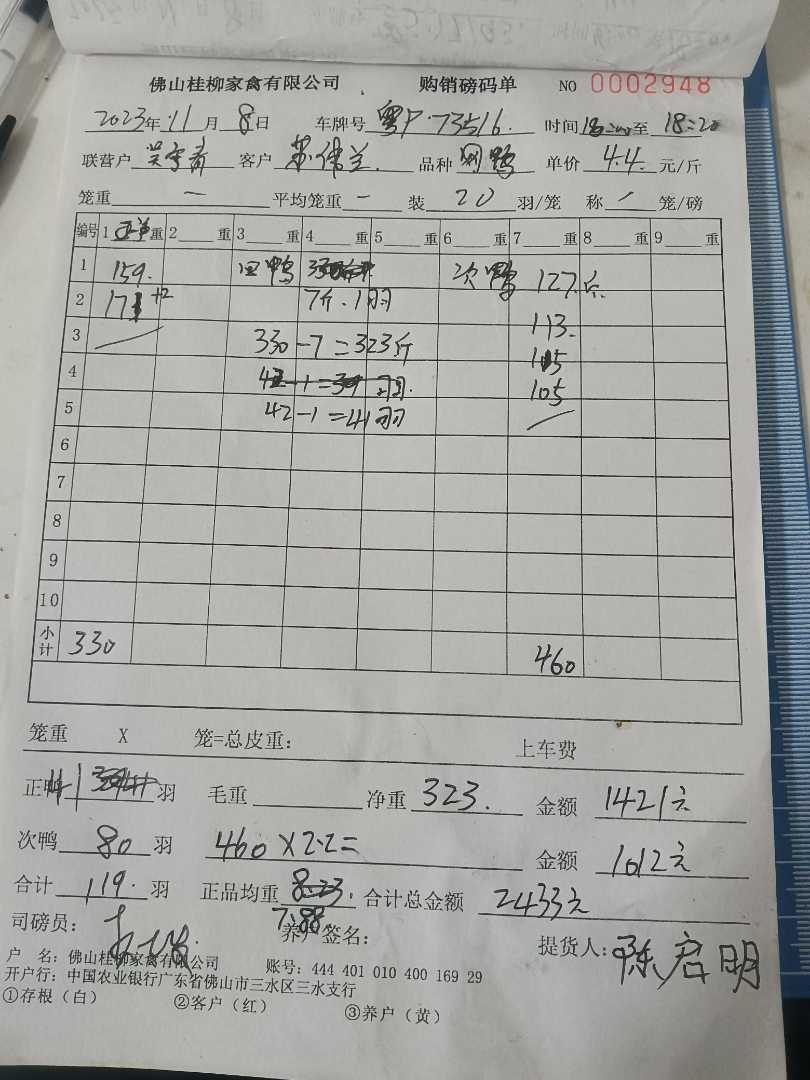 佛山桂柳家禽有限公司 购销磅码单 NO 0002948
2023年 11 月 8 日 车牌号 粤P·73516. 时间 至 18:20
联营户 客户 品种 单价 4.4. 元/斤
笼重 — 平均笼重 — 装 20 羽/笼 称 / 笼/磅
编号 1 重 2 重 3 重 4 重 5 重 6 重 7 重 8 重 9 重
1 159. 鸭 次鸭 127斤
2 171 +2 7斤.1羽 113.
3 330-7=323斤 115
4 羽. 105
5 42-1=41羽
6
7
8
9
10
小计 330 460
笼重 X 笼=总皮重: 上车费
正鸭 41 羽 毛重 净重 323. 金额 1421元
次鸭 80 羽 460×2.2= 金额 1012元
合计 119. 羽 正品均重 7.88 合计总金额 2433元
司磅员: 养户签名: 提货人: 陈启明
户 名: 佛山桂柳家禽有限公司 账号: 444 401 010 400 169 29
开户行: 中国农业银行广东省佛山市三水区三水支行
①存根（白） ②客户（红） ③养户（黄）